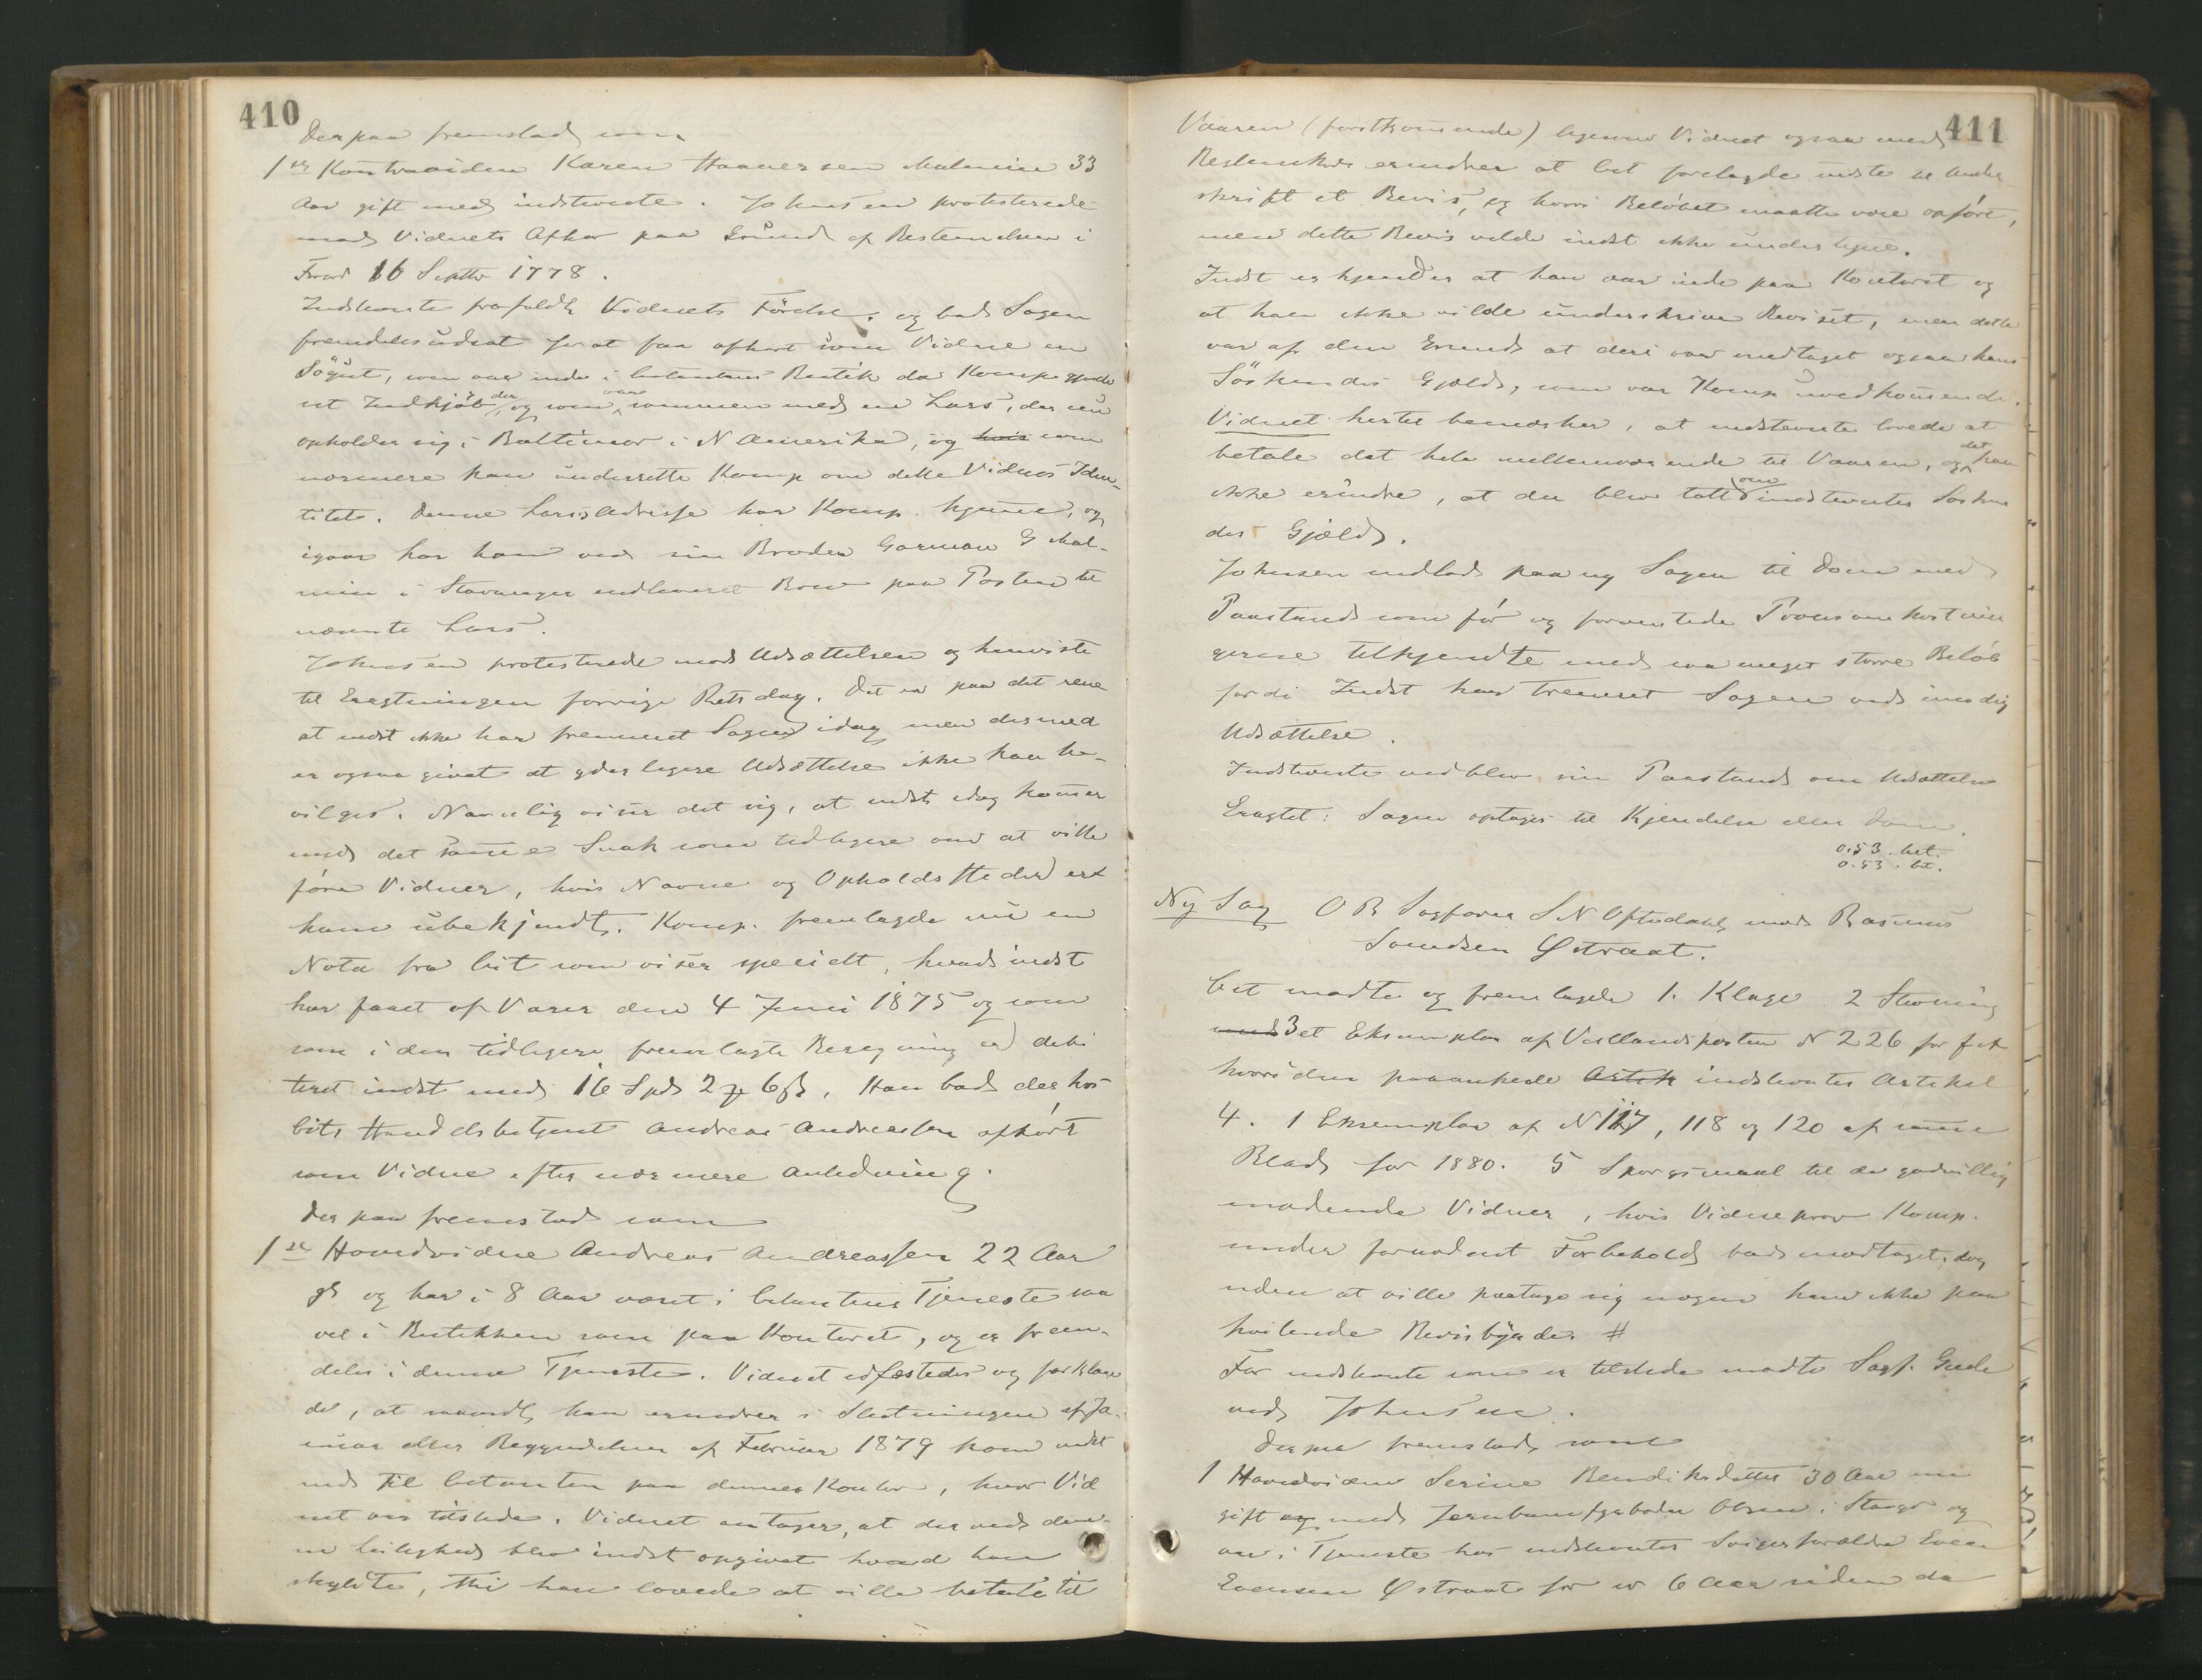 410
Derpaa fremstod som
1ste Kontravidne Karen Haaversen Malmin 33
Aar gift med indstevnte. Johnsen protesterede
mod Vidnets Afhør paa Grund af Bestemmelsen i
Frord 16 Septbr 1778.
Indstevnte frafaldt Vidnets Førelse, og bad Sagen
fremdeles udsat for at faa afhørt som Vidne en
Søgut, som var inde i Citantens Butik da Komp gjorde
sit Indkjøb der, og som var sammen med en Lars, der nu
opholder sig i Baltimor i N Amerika, og hvis som
nærmere kan underrette Komp om dette Vidnes Iden-
titet. Denne Lars's Adresse har Komp. hjemme, og
igaar har han ved sin Broder Gorman G Mal-
min i Stavanger indleveret Brev paa Posten til
nævnte Lars.
Johnsen protesterede mod Udsættelsen og henviste
til Eragtningen forrige Retsdag. Det er paa det rene
at indst ikke har fremmet Sagen idag men dermed
er ogsaa givet at yderligere Udsættelse ikke kan be-
vilges. Navnlig viser det sig, at indst idag kommer
med det samme Snak som tidligere om at ville
føre Vidner, hvis Navne og Opholdssteder er
ham ubekjendt. Komp. fremlagde nu en
Nota fra Cit som viser specielt, hvad indst
har faaet af Varer den 4 Juni 1875 og som
som i den tidligere fremlagte Regning er debi
teret indst med 16 Spd 2 6 ß. Han bad derhos
Cits Handelsbetjent Andreas Andreassen afhørt
som Vidne efter nærmere Anledning.
Derpaa fremstod som
1ste Hovedvidne Andreas Andreassen 22 Aar
gl og har i 8 Aar været i Citantens Tjeneste saa
vel i Butikken som paa Kontoret, og er frem-
deles i denne Tjeneste. Vidnet edfæstedes og forklare
de, at saavidt han erindrer i Slutningen af Ja-
nuar eller Begyndelsen af Februar 1879 kom indst
ind til Citanten paa dennes Kontor, hvor Vid
net var tilstede. Vidnet antager, at der ved den-
ne Leilighed blev indst opgivet hvad han
skyldte, thi han lovede at ville betale til
411
Vaaren (førstkommende) ligesom Vidnet ogsaa med
Bestemthed erindrer at Cit forelagde indste til Under
skrift et Bevis, og hvori Beløbet maatte være anført,
men dette Bevis vilde indst ikke undertegne.
Indst erkjender at han var inde paa Kontoret og
at han ikke vilde underskrive Beviset, men dette
var af den Grund at deri var medtaget ogsaa hans
Søskendes Gjæld, som var Komp uvedkommende.
Vidnet hertil bemærker, at indstevnte lovede at
betale det hele mellemværende til Vaaren, og det kan
ikke erindre, at der blev talt om indstevntes Sosken
des Gjæld.
Johnsen indlod paany Sagen til Dom med
Paastand som før og forventede Procesomkostnin
gerne tilkjendte med saa meget større Beløb
fordi Indst har treneret Sagen ved unødig
Udsættelse.
Indstevnte vedblev sin Paastand om Udsættelse
Eragtet: Sagen optages til Kjendelse eller Dom.
0.53. bet.
0.53. bet.
Ny Sag O R Sagfører S N Oftedahl mod Rasmus
Svendsen Østraat.
Cit mødte og fremlagde 1. Klage 2 Stevning
med 3 et Eksemplar af Vestlandsposten N 226 for f A
hvori den paaankede Artik indstevntes Artikel
4. 1 Eksemplar af N 117, 118 og 120 af samme
Blad for 1880. 5 Spørgsmaal til de godvillig
mødende Vidner, hvis Vidneprov Komp.
under fornødent Forbehold bad modtaget, dog
uden at ville paatage sig nogen ham ikke paa
hvilende Bevisbyrde #
For indstevnte som er tilstede mødte Sagf. Grude
ved Johnsen.
Derpaa fremstod som
1 Hovedvidne Serine Bendiksdatter 30 Aar nu
gift og med Jernbane Olsen i Stavgr og
var i Tjeneste hos indstevntes Svigerforældre Even
Evensen Østraat for 6 Aar siden da